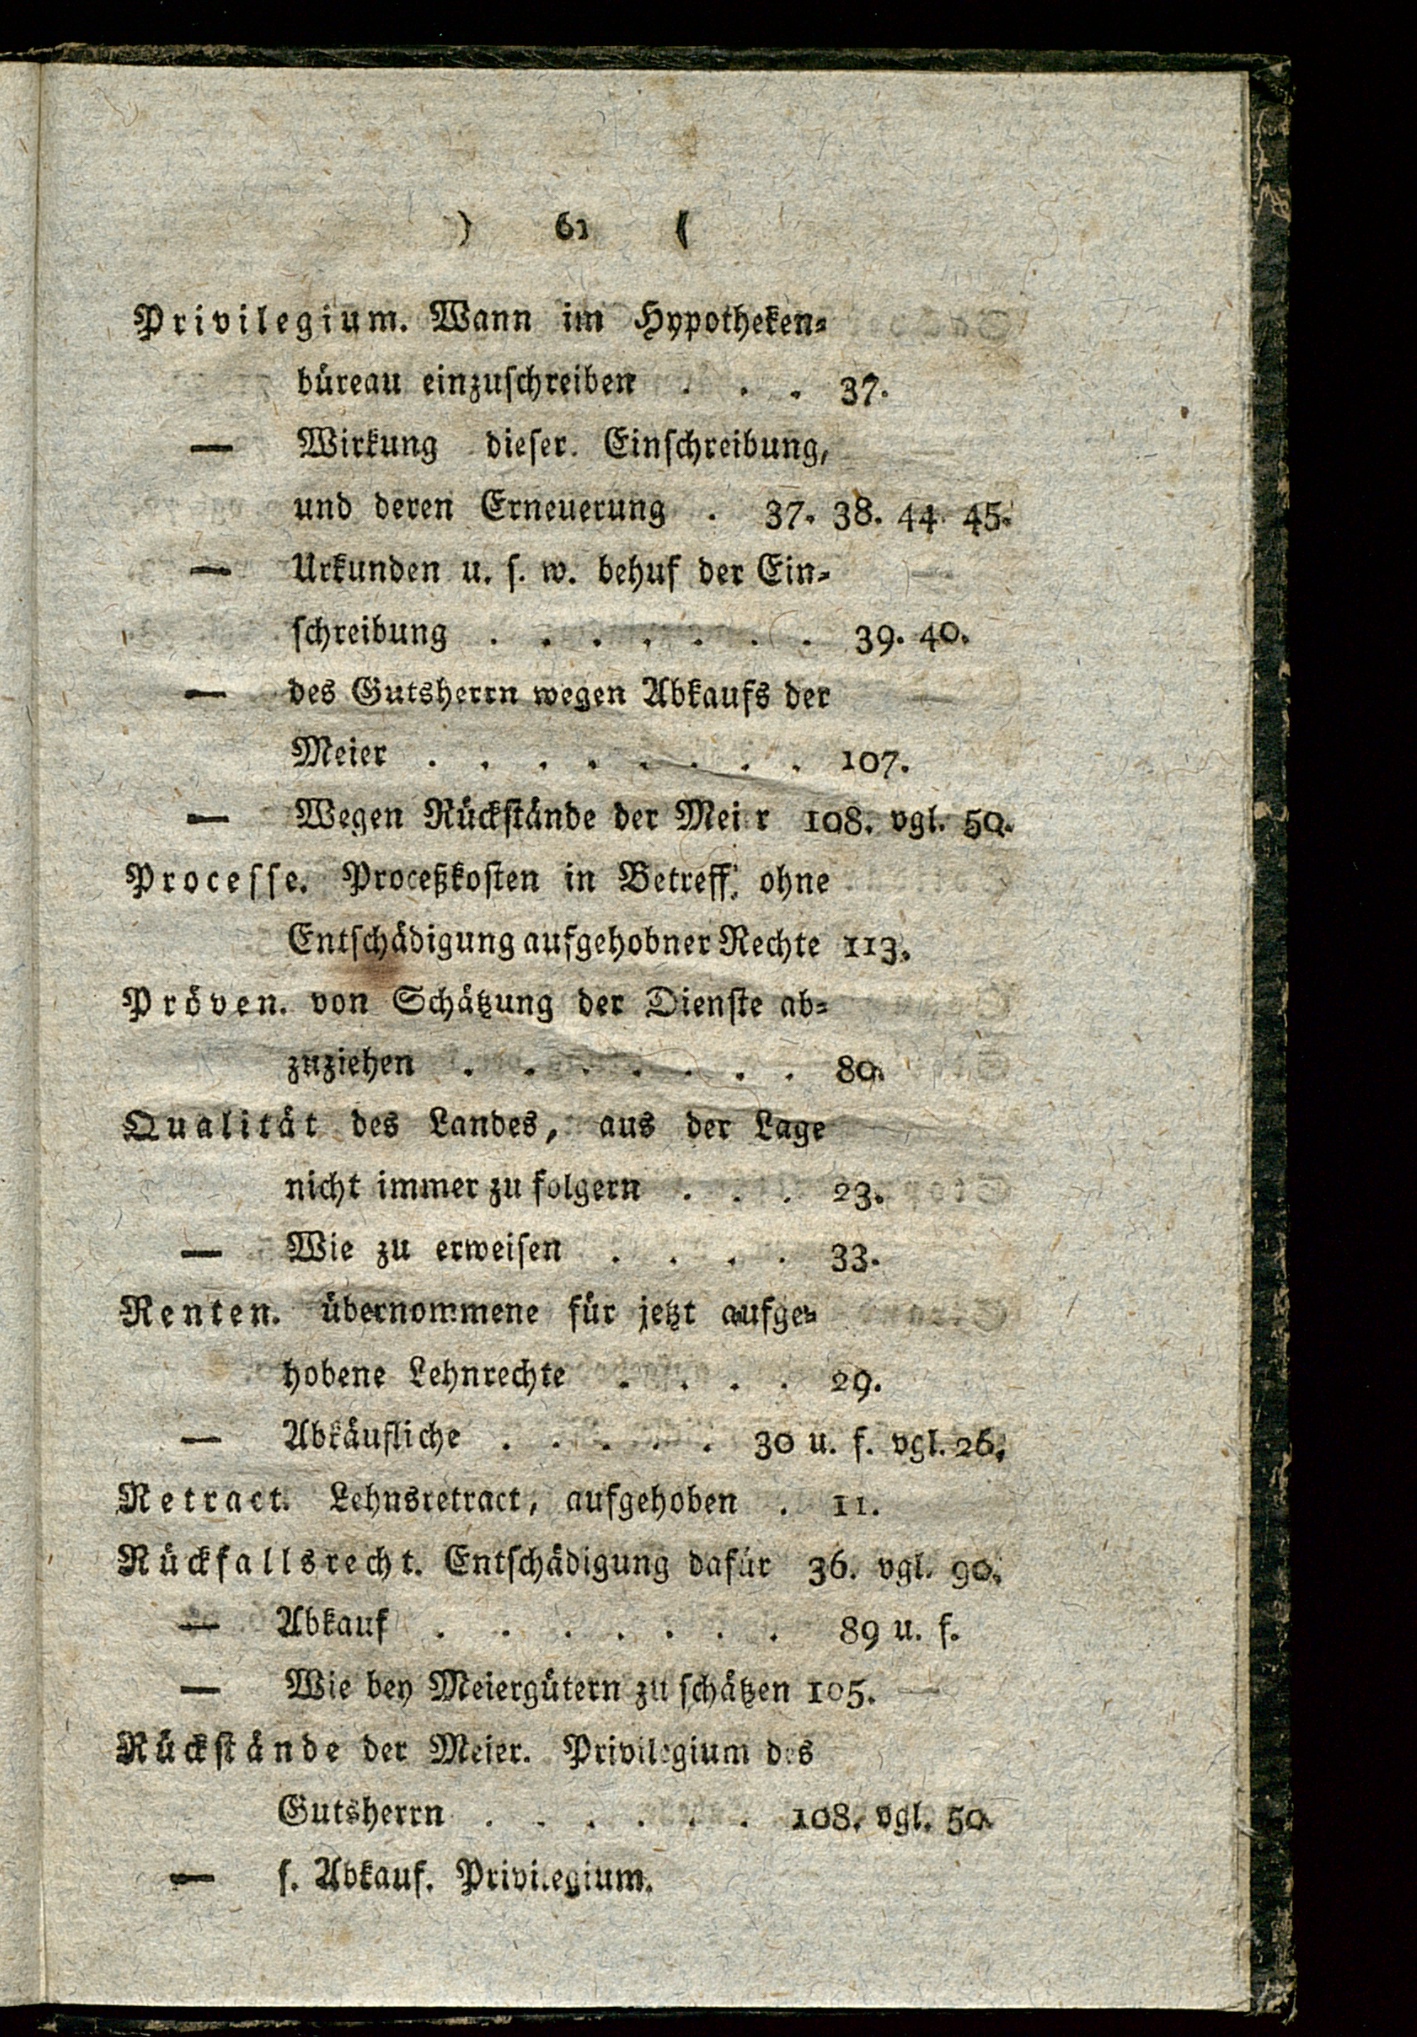 ) 61 (
Privilegium. Wann im Hypotheken-
büreau einzuschreiben . . . 37.
— Wirkung dieser Einschreibung,
und deren Erneuerung . 37. 38. 44. 45.
— Urkunden u. s. w. behuf der Ein-
schreibung . . . . . . . 39. 40.
— des Gutsherrn wegen Abkaufs der
Meier . . . . . . . . 107.
— Wegen Rückstände der Meier 108. vgl. 50.
Processe. Proceßkosten in Betreff ohne
Entschädigung aufgehobner Rechte 113.
Pröven. von Schätzung der Dienste ab-
zuziehen . . . . . . . 80.
Qualität des Landes, aus der Lage
nicht immer zu folgern . . . 23.
— Wie zu erweisen . . . . 33.
Renten. übernommene für jetzt aufge-
hobene Lehnrechte . . . . 29.
— Abkäufliche . . . . . 30 u. f. vgl. 26.
Retract. Lehnsretract, aufgehoben . 11.
Rückfallsrecht. Entschädigung dafür 36. vgl. 90.
— Abkauf . . . . . . . 89 u. f.
— Wie bey Meiergütern zu schätzen 105.
Rückstände der Meier. Privilegium des
Gutsherrn . . . . . . 108. vgl. 50.
— s. Abkauf. Privilegium.